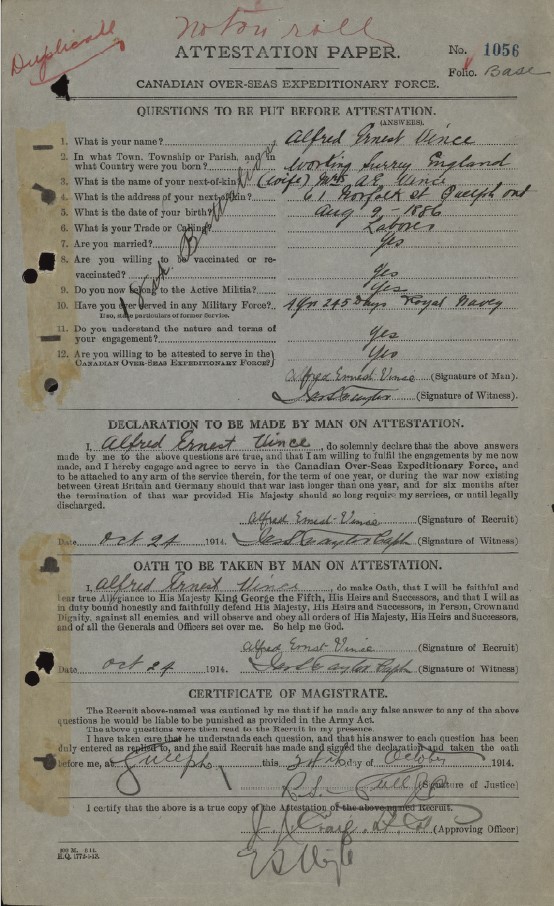 not on roll
Duplicate
ATTESTATION PAPER.
No. 1056
Folio. Base
CANADIAN OVER-SEAS EXPEDITIONARY FORCE.
QUESTIONS TO BE PUT BEFORE ATTESTATION.
(ANSWERS).
1. What is your name? Alfred Ernest Vince
2. In what Town, Township or Parish, and in
what Country were you born? Surrey England
3. What is the name of your next-of-kin? (wife) Mrs A E Vince
4. What is the address of your next-of-kin? 61 Norfolk St Guelph ont
5. What is the date of your birth? Aug 9 - 1886
6. What is your Trade or Calling? Laborer
7. Are you married? Yes
8. Are you willing to be vaccinated or re-
vaccinated? Yes
9. Do you now belong to the Active Militia? Yes
10. Have you ever served in any Military Force? 245 Days Royal Navey
If so, state particulars of former Service.
11. Do you understand the nature and terms of
your engagement? Yes
12. Are you willing to be attested to serve in the
CANADIAN OVER-SEAS EXPEDITIONARY FORCE? Yes
Alfred Ernest Vince (Signature of Man).
(Signature of Witness).
DECLARATION TO BE MADE BY MAN ON ATTESTATION.
I, Alfred Ernest Vince, do solemnly declare that the above answers
made by me to the above questions are true, and that I am willing to fulfil the engagements by me now
made, and I hereby engage and agree to serve in the Canadian Over-Seas Expeditionary Force, and
to be attached to any arm of the service therein, for the term of one year, or during the war now existing
between Great Britain and Germany should that war last longer than one year, and for six months after
the termination of that war provided His Majesty should so long require my services, or until legally
discharged.
Alfred Ernest Vince (Signature of Recruit)
Date Oct 24 1914. (Signature of Witness)
OATH TO BE TAKEN BY MAN ON ATTESTATION.
I, Alfred Ernest Vince, do make Oath, that I will be faithful and
bear true Allegiance to His Majesty King George the Fifth, His Heirs and Successors, and that I will as
in duty bound honestly and faithfully defend His Majesty, His Heirs and Successors, in Person, Crown and
Dignity, against all enemies, and will observe and obey all orders of His Majesty, His Heirs and Successors,
and of all the Generals and Officers set over me. So help me God.
Alfred Ernest Vince (Signature of Recruit)
Date Oct 24 1914. (Signature of Witness)
CERTIFICATE OF MAGISTRATE.
The Recruit above-named was cautioned by me that if he made any false answer to any of the above
questions he would be liable to be punished as provided in the Army Act.
The above questions were then read to the Recruit in my presence.
I have taken care that he understands each question, and that his answer to each question has been
duly entered as replied to, and the said Recruit has made and signed the declaration and taken the oath
before me, at Guelph, this 24th day of October 1914.
(Signature of Justice)
I certify that the above is a true copy of the Attestation of the above-named Recruit.
(Approving Officer)
H.Q. 1772-1-13.